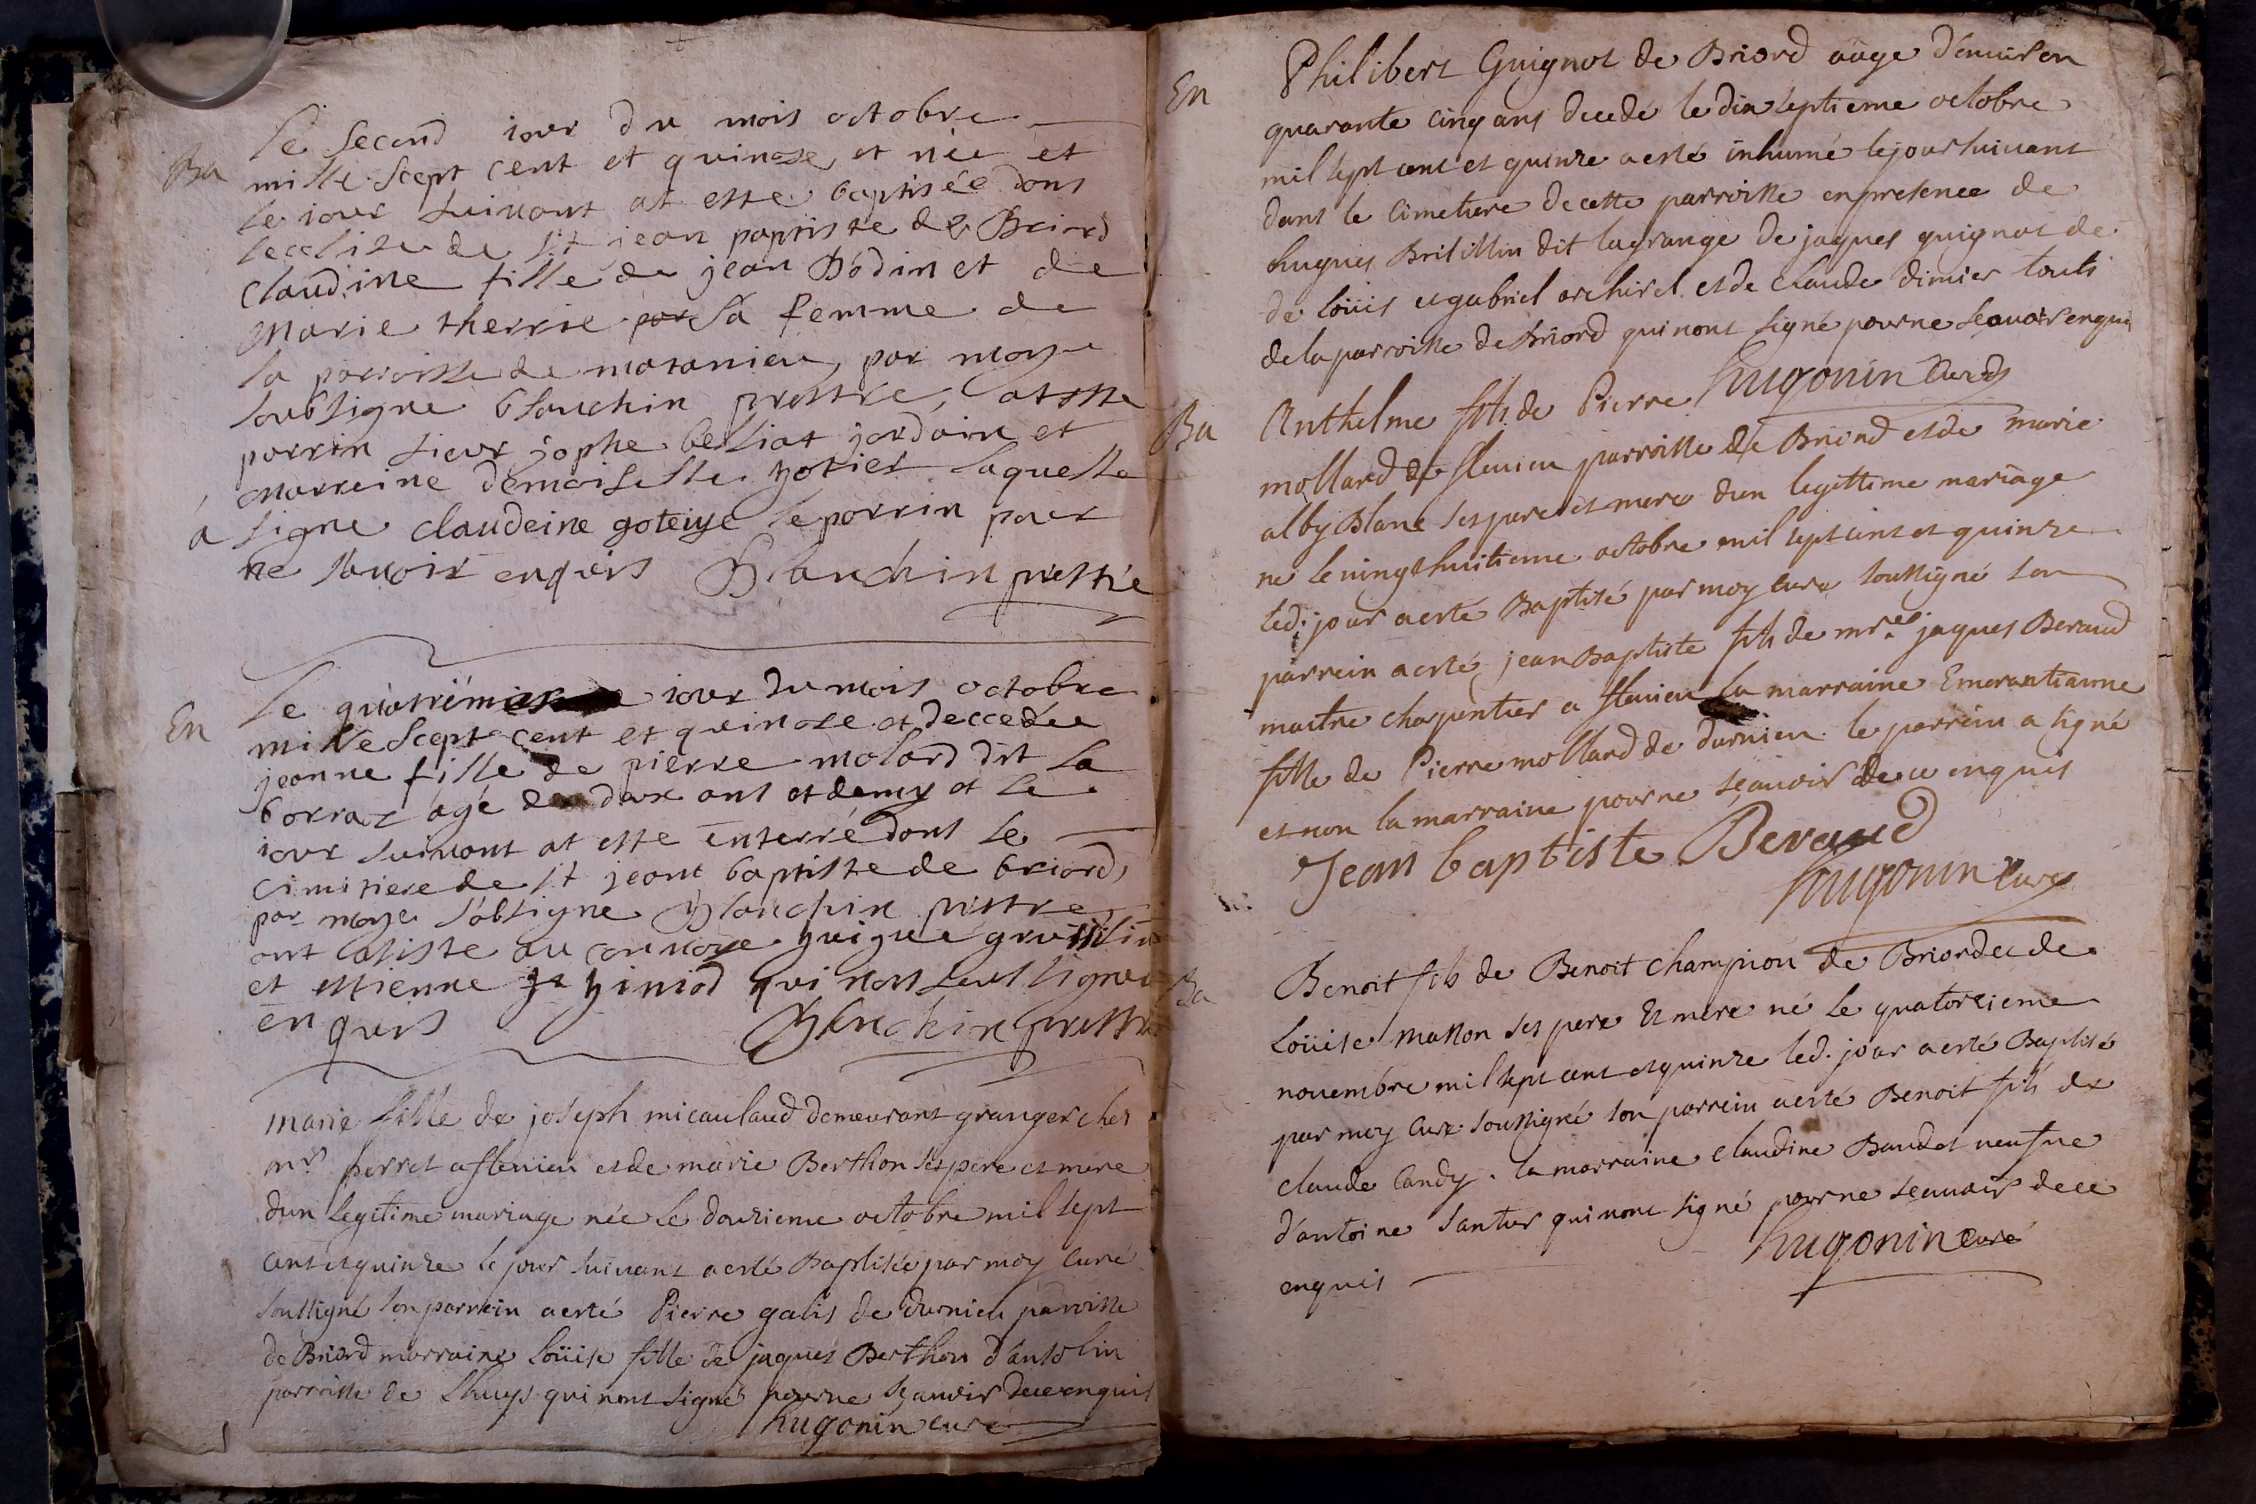 Ba
Le second iour du mois octobre
mille Scept cent et quinose et née et
le iour suivant at este baptisée dans
leeclise de st jean paptiste de Briord
Claudine fille de jean Bodin et de
Marie therrie sa femme de
la parroisse de maranieu, par moy
soubsigne blanchin prestre, atste
porrin sieur jophe belliat jordain et
marreine demoiselle gotiet laquelle
a signe claudeine goteiye le porrin pour
ne savoir enquis Blanchin prestre
En
Le quatriéme iour du mois octobre
mille Scept cent et quinose at deccedée
jeanne fille de pierre molard dit la
borraz agé de dux ans et demy et le
iour suivant at este enterré dans le
cimitiere de st jeant baptiste de briord,
par moye sobsigne Blanchin prestre
ont asiste au convoye
et estienne giniod qui nons seut signer
en quis Blanchin prestre
marie fille de joseph micaulaud demeurant granger ches
mr. perret a flenieu et de marie Berthon ses pere et mere
dun legitime mariage née le douzieme octobre mil sept
cent et quinze le jour suivant a esté Baptisée par moy curé
soussigné son parrein a esté Pierre galis de dornieu paroisse
de Briord marraine Loüise fille de jaques Berthon d'antolin
parroisse de Lhuys qui nont signé pour ne sçauoir de ce enquis
hugonin curé
En
Philibert Guignot de Briord aagé d'enuiron
quarante cinq ans decedé le dix septieme octobre
mil sept cent et quinze a esté inhumé le jour suivant
dans le cimetiere de cette parroisse en presence de
hugues Brisillin dit lagrange de jaques guignot de
de Loüis et gabriel archirel et de claude dimier touts
de la parroisse de Briord qui nont signé pour ne sçauoir enquis
hugonin curé
Ba
Anthelme fils de Pierre
mollard de flenieu parroisse de Briord et de marie
alby Blanc ses pere et mere dun legittime mariage
né le vingt huitieme octobre mil sept cent et quinze
led. jour a esté Baptisé par moy curé soussigné son
parrein a esté jean Baptiste fils de mre. jaques Beraud
maitre charpentier a flenieu la marraine Emerantianne
fille de Pierre mollard de dornieu. le parrein a signé
et non la marraine pour ne sçauoir de ce enquis
Jean baptiste Beraud
hugonin curé
Ba
Benoit fils de Benoit champion de Briord et de
Loüise masson ses pere et mere né le quatorzieme
nouembre mil sept cent et quinze led. jour a esté Baptisé
par moy curé soussigné son parrein a esté Benoit fils de
claude Candy. la marraine claudine Baudet veufue
d'antoine santier qui nont signé pour ne sçauoir de ce
enquis hugonin curé